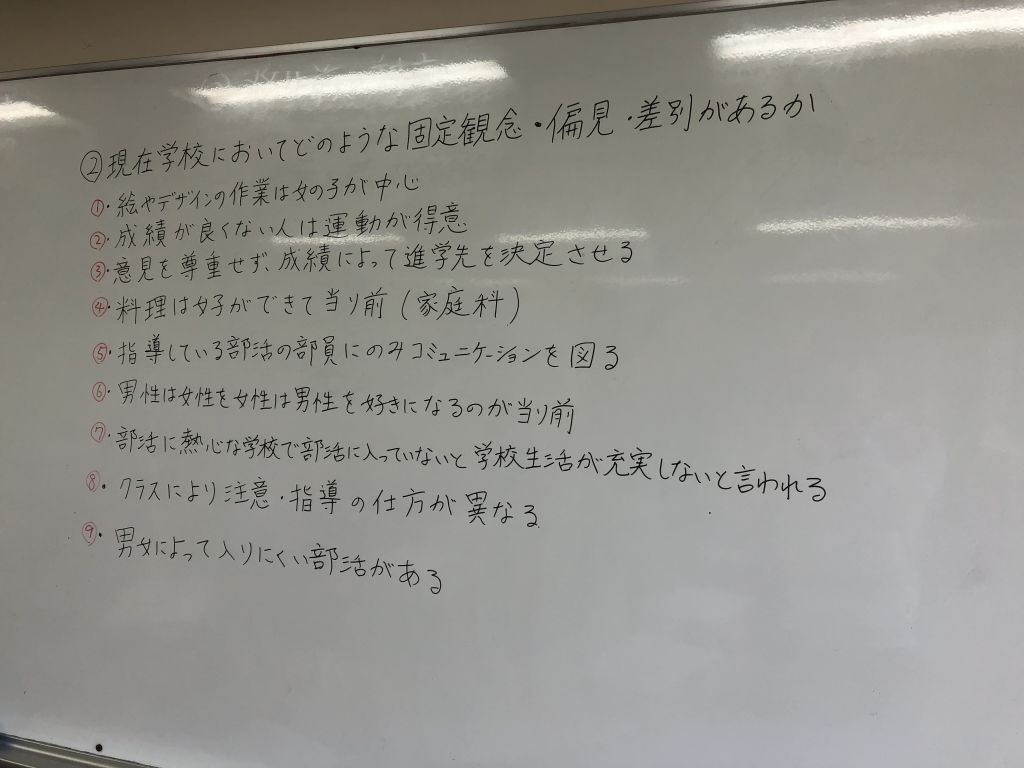 ②現在学校においてどのような固定観念・偏見・差別があるか
①・絵やデザインの作業は女の子が中心
②・成績が良くない人は運動が得意
③・意見を尊重せず、成績によって進学先を決定させる
④・料理は女子ができて当り前(家庭科)
⑤・指導している部活の部員にのみコミュニケーションを図る
⑥・男性は女性を女性は男性を好きになるのが当り前
⑦・部活に熱心な学校で部活に入っていないと学校生活が充実しないと言われる
⑧・クラスにより注意・指導の仕方が異なる
⑨・男女によって入りにくい部活がある